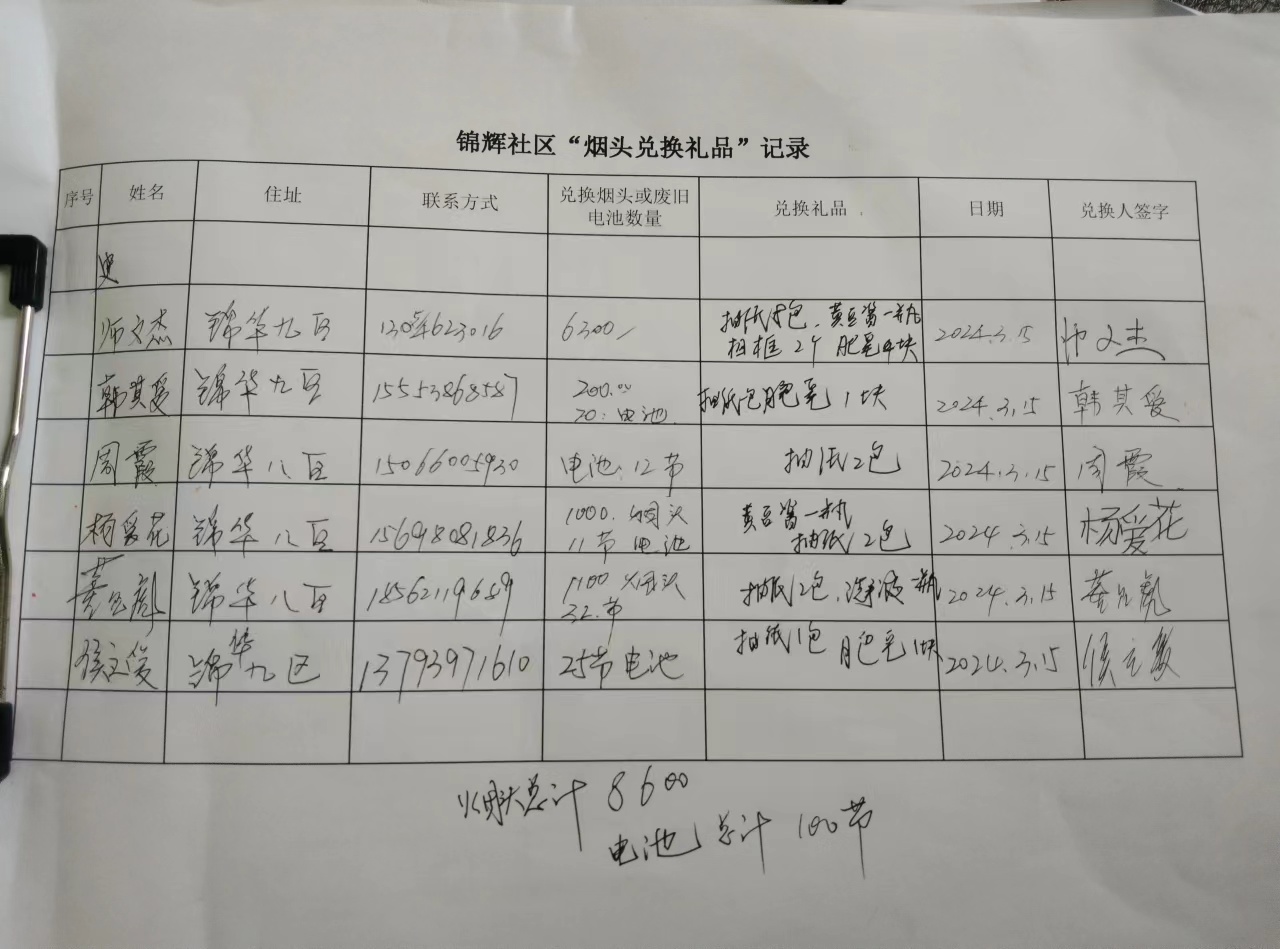 锦辉社区“烟头兑换礼品”记录
序号 姓名 住址 联系方式 兑换烟头或废旧电池数量 兑换礼品 日期 兑换人签字
史
师文杰 锦华九区 6300 抽纸 包、黄豆酱一瓶 2024.3.15 师文杰
相框2个 肥皂4块
韩其爱 锦华九区 15552868587 200.00 抽纸 包肥皂1块 2024.3.15 韩其爱
20:电池
周霞 锦华八区 15066005930 电池:12节 抽纸2包 2024.3.15 周霞
杨爱花 锦华八区 15698081836 1000.烟头 黄豆酱一瓶 2024.3.15 杨爱花
11节电池 抽纸2包
锦华八区 18562119689 1100烟头 抽纸2包、 一瓶 2024.3.15
32.节
侯立俊 锦华九区 13793971610 25节电池 抽纸1包 肥皂1块 2024.3.15 侯立俊
烟头总计 8600
电池总计 100节